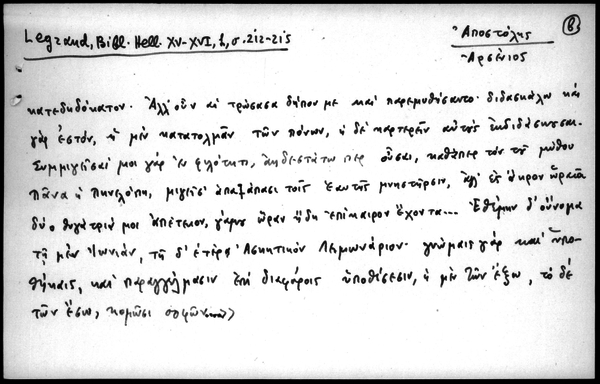 Legrand, Bibl. Hell. XV-XVI, 2, σ. 212-215
Ἀποστόλης
Ἀρσένιος
6
κατεδηδόκατον. Ἀλλ' οὖν αἱ τρώσασαι δήπου με καὶ παρεμυθήσαντο· διδασκάλω καὶ
γάρ ἐστόν, ἡ μὲν κατατολμᾶν τῶν πόνων, ἡ δὲ καρτερεῖν αὐτοὺς ἐκδιδάσκουσαι.
Συμμιγεῖσαί μοι γὰρ ἐν φιλότητι, ἀηδέστατω περ οὖσαι, καθάπερ τὸν τοῦ μύθου
Πᾶνα ἡ Πηνελόπη, μιγεῖσ' ἁπαξάπασι τοῖς ἑαυτῆς μνηστῆρσιν, ἀλλ' εἰς ἄκρον ὡραῖα
δύο θυγατρίω μοι ἀπέτεκον, γάμου ὥραν ἤδη ἐπίκαιρον ἔχοντα... Ἐθέμην δ' οὔνομα
τῇ μὲν Ἰωνιάν, τῇ δ' ἑτέρᾳ Ἀσκητικὸν Λειμωνάριον· γνώμαις γὰρ καὶ ὑπο-
θήκαις, καὶ παραγγέλμασιν ἐπὶ διαφόροις ὑποθέσεσιν, ἡ μὲν τῶν ἔξω, τὸ δὲ
τῶν ἔσω, κομῶσι σοφῶν